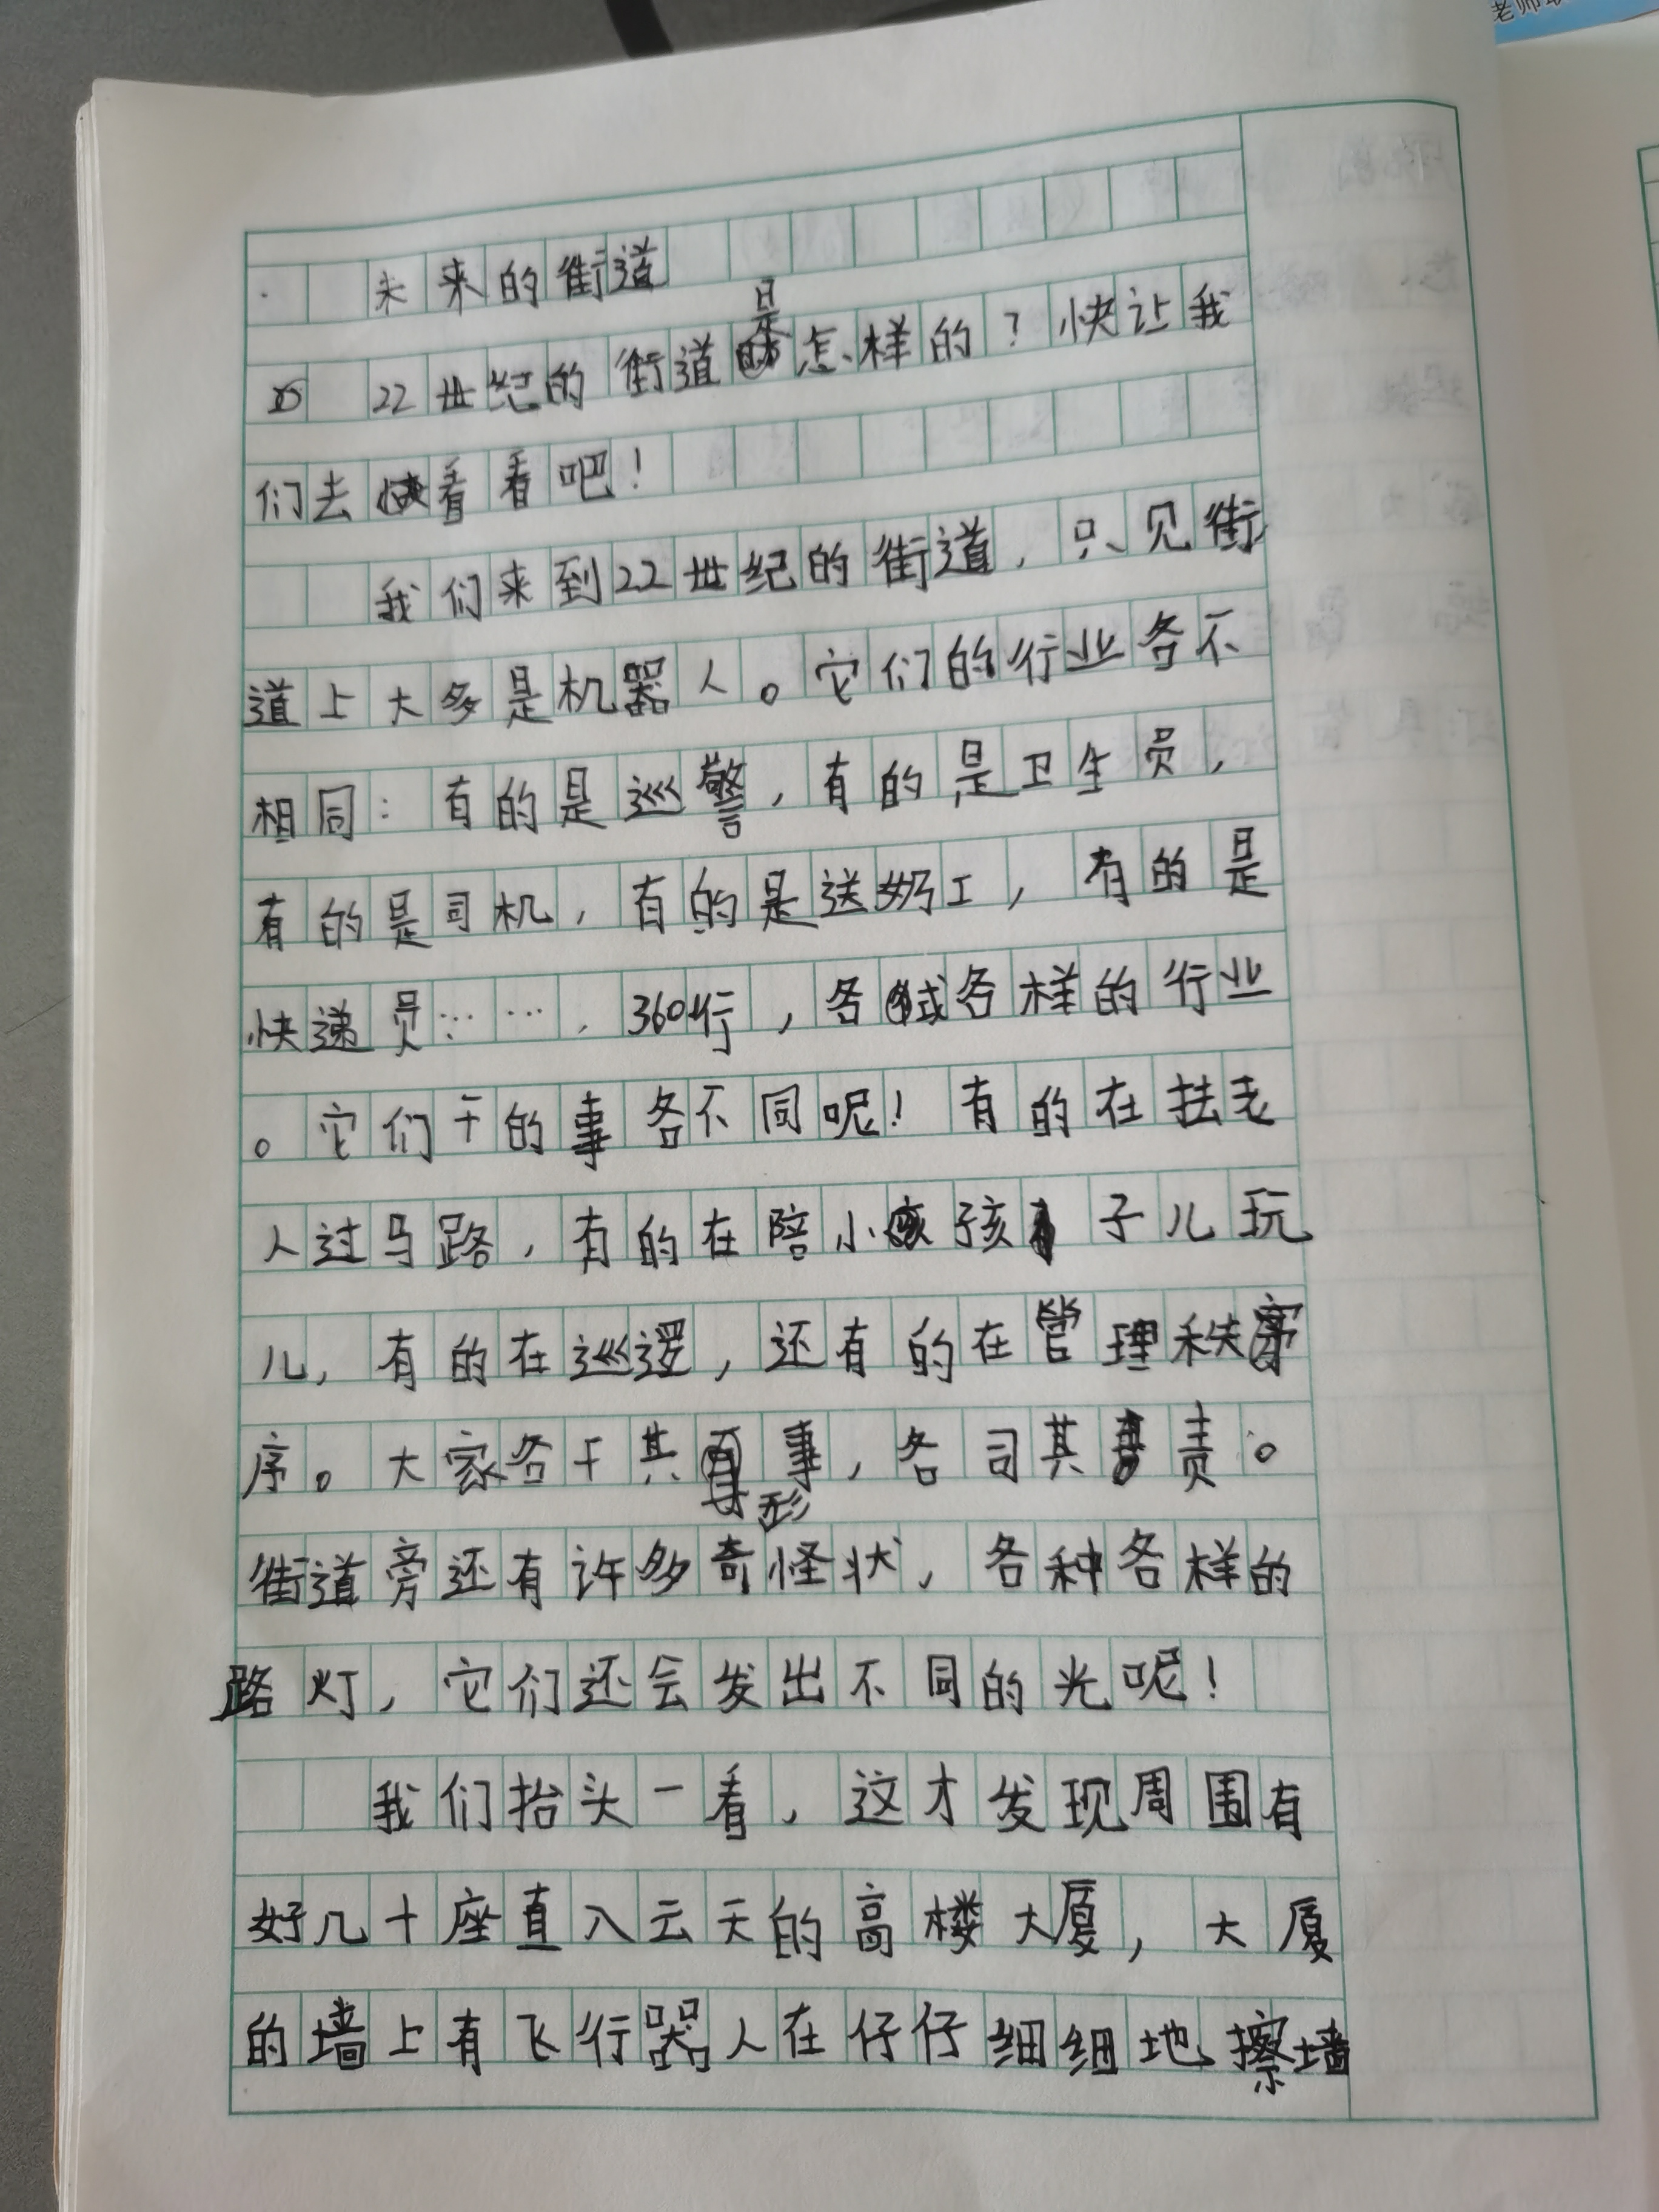 老师
未来的街道
22世纪的街道是怎样的？快让我
们去看看吧！
我们来到22世纪的街道，只见街
道上大多是机器人。它们的行业各不
相同：有的是巡警，有的是卫生员，
有的是司机，有的是送奶工，有的是
快递员……，360行，各式各样的行业
。它们干的事各不同呢！有的在扶老
人过马路，有的在陪小孩子儿玩
儿，有的在巡逻，还有的在管理秩
序。大家各干其事，各司其责。
街道旁还有许多奇形怪状，各种各样的
路灯，它们还会发出不同的光呢！
我们抬头一看，这才发现周围有
好几十座直入云天的高楼大厦，大厦
的墙上有飞行器人在仔仔细细地擦墙